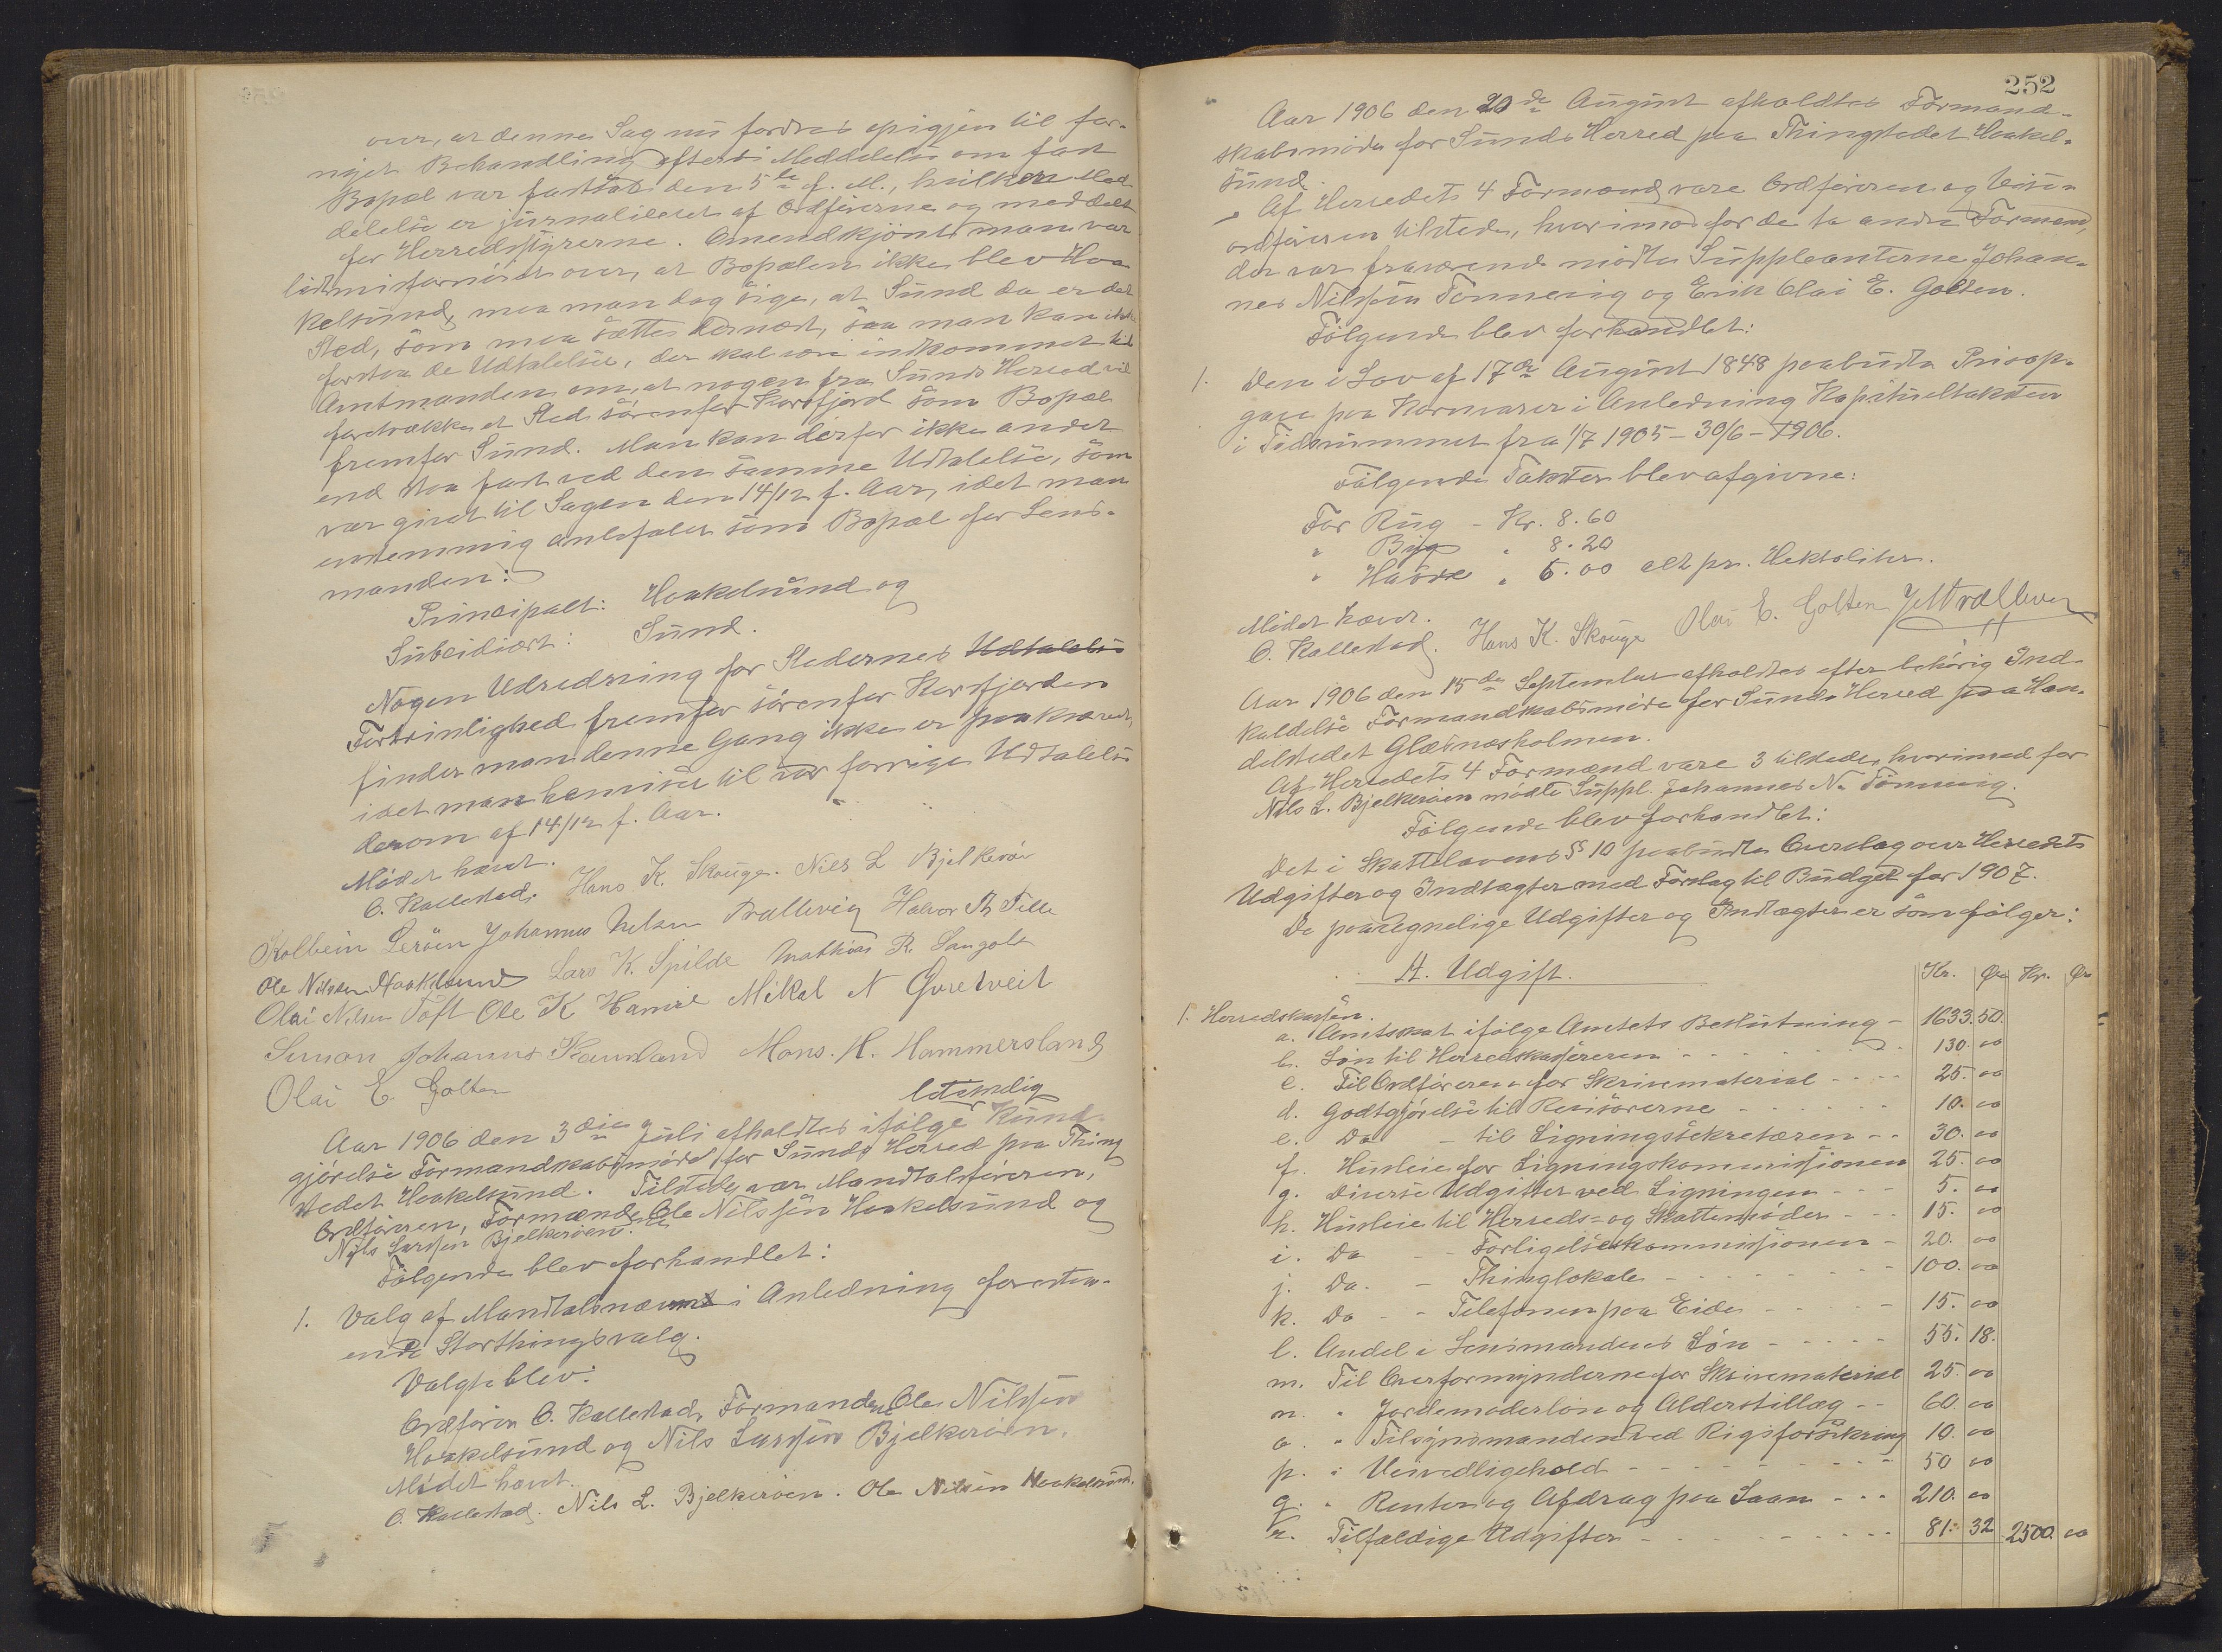 over, at denne Sag nu fordres opigjen til for-
nyet Behandling efterat Meddelelse om fast
Bopæl var fastsat den 5te f. M., hvilken Med
delelse er journaliseret af Ordføreren og meddelt
for Herredsstyrerne. Omendskjønt man var
lidt misfornøiet over, at Bopælen ikke blev Hoa
kelsund, maa man dog sige, at Sund da er det
Sted, som maa sættes dernæst, saa man kan ikke
forstaa de Udtalelser, der skal være indkommet til
Amtmanden om, at nogen fra Sunds Herred vil
foretrække et Sted sørenfor Korsfjord som Bopæl
fremfor Sund. Man kan derfor ikke andet
end staa fast ved den samme Udtalelse, som
var givet til Sagen den 14/12 f. Aar, idet man
enstemmig anbefaler som Bopæl for Lens-
manden:
Principalt: Hoakelsund og
Subsidiært: Sund.
Nogen Udredning for Stedernes Udtalelse
Fortrinlighed fremfor sørenfor Korsfjorden
finder man denne Gang ikke er paakrævet,
idet man henviser til vor forrige Udtalelse
derom af 14/12 f. Aar.
Mødet hævet.
O. Kallestad. Hans K. Skouge. Nils L Bjelkerøen
Kolbein Lerøen Johannes Nelsen Trællevig Halvor A Telle
Ole Nilssen Hoakelsund Lars K. Spilde Mathias R. Sangolt
Olai Nilsen Toft Ole K Hamre Mikal N Gvretveit
Simon Johannes Kaunland Mons. H. Hammersland
Olai E. Golten
lovmelig
Aar 1906 den 3die Juli afholdtes ifølge Kund-
gjørelse Formandskabsmøde for Sunds Herred paa Thing
stedet Hoakelsund. Tilstede var Mandtalsføreren,
Ordføreren, Formændene Ole Nilssen Hoakelsund og
Nils Larssen Bjelkerøen.
Følgende blev forhandlet:
1. Valg af Mandtalsnævnd i Anledning foresta-
ende Storthingsvalg.
Valgte blev:
Ordfører O. Kallestad, Formændene Ole Nilssen
Hoakelsund og Nils Larssen Bjelkerøen.
Mødet hævet.
O. Kallestad. Nils L. Bjelkerøen. Ole Nilsen Hoakelsund.
252
Aar 1906 den 20de August afholdtes Formand-
skabsmøde for Sunds Herred paa Thingstedet Hoakel-
sund.
Af Herredets 4 Formænd vare Ordføreren og Vise-
ordføreren tilstede, hvorimod for de to andre Formænd,
der var fraværende mødte Suppleanterne Johan-
nes Nilssen Tønnevig og Erik Olai E. Golten.
Følgende blev forhandlet:
1. Den i Lov af 17de August 1848 paabudte Prisop-
gave paa Kornvarer i Anledning Kapitueltaksten
i Tidsrummet fra 1/7 1905 - 30/6 - 1906.
Følgende Takster blev afgivne:
For Rug - Kr. 8.60
" Byg " 8.20
" Havre " 5.00 alt pr. Hektoliter.
Mødet hævet.
O. Kallestad. Hans K. Skouge Olai E. Golten J N Trællevig
Aar 1906 den 15de September afholdtes efter behørig Ind-
kaldelse Formandskabsmøde for Sunds Herred paa Han-
delstedet Glæsnæsholmen.
Af Herredets 4 Formænd vare 3 tilstede, hvorimod for
Nils L. Bjelkerøen mødte Suppl. Johannes N. Tønnevig.
Følgende blev forhandlet:
Det i Skattelovens § 10 paabudte Overslag over Herredets
Udgifter og Indtægter med Forslag til Budget for 1907.
De paaregnelige Udgifter og Indtægter er som følger:
A. Udgift. Kr. Øre Kr. Øre
1. Herredskassen.
a. Amtsskat ifølge Amtets Beslutning - 1633. 50.
b. Løn til Herredskassereren - - - 130. 00
c. Til Ordføreren for Skrivematerial - - - 25. 00
d. Godtgjørelse til Revisorerne - - - 10. 00
e. Do - til Ligningssekretæren - - 30. 00
f. Husleie for Ligningskommissionen 25. 00
g. Diverse Udgifter ved Ligningen - - - 5. 00
h. Husleie til Herreds- og Skattemøder - - - 15. 00
i. Do - - Forligelseskommissionen - 20. 00
j. Do. - Thinglokale - - - 100. 00
k. Do - - Telefonen paa Eide - - - 15. 00
l. Andel i Lensmandens Løn - - - 55. 18.
m. Til Overformynderne for Skrivematerial 25. 00
n. " Jordemoderløn og Alderstillæg - - 60. 00
o. " Tilsynsmanden ved Rigsforsikring 10. 00
p. " Veivedligehold - - - 50 00
q. " Renter og Afdrag paa Laan - - - 210. 00
r. Tilfældige Udgifter - - - 81. 32 2500. 00